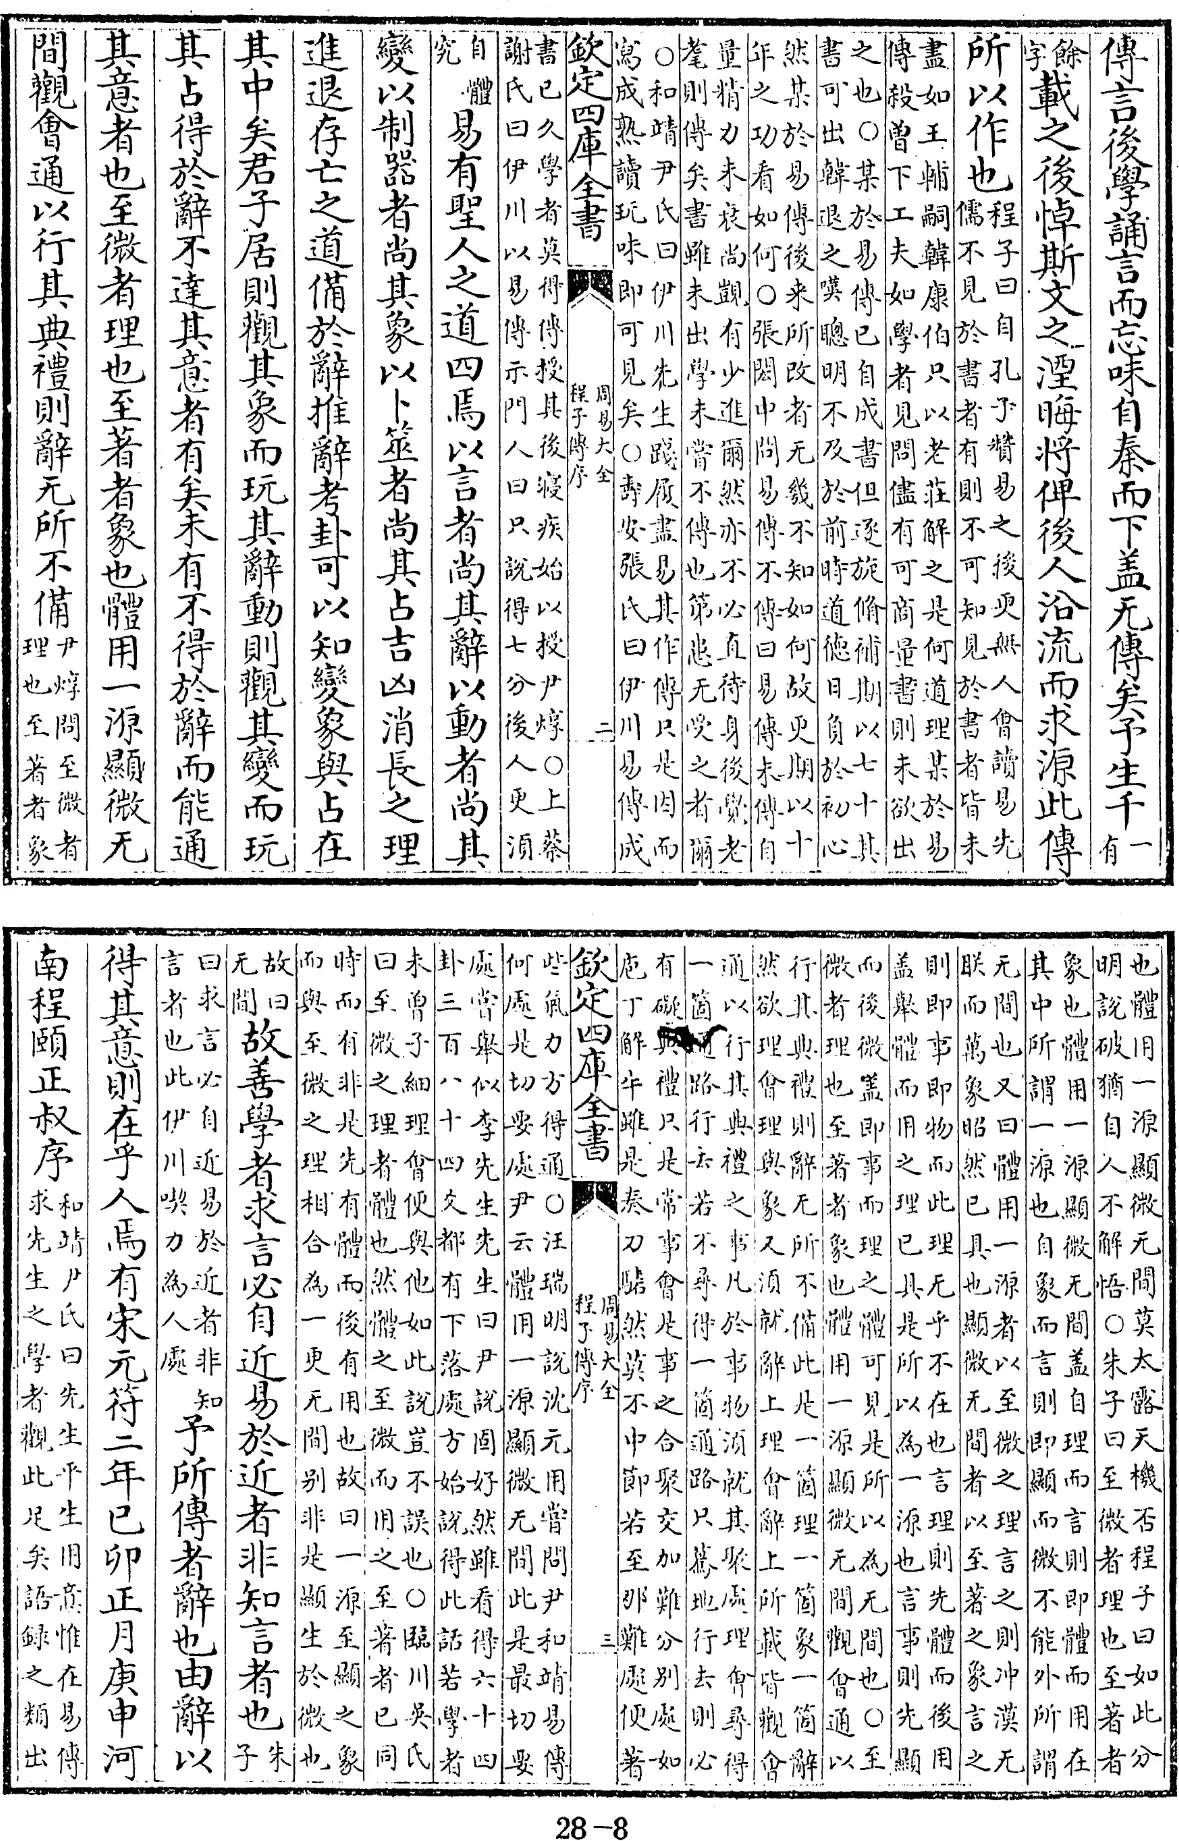 傳言後學誦言而忘味自秦而下蓋无傳矣予生千一有
餘字載之後悼斯文之湮晦將俾後人沿流而求源此傳
所以作也程子曰自孔子贊易之後更無人會讀易先
儒不見於書者有則不可知見於書者皆未
盡如王輔嗣韓康伯只以老莊解之是何道理某於易
傳殺曾下工夫如學者見問儘有可商量書則未欲出
之也○某於易傳已自成書但逐旋脩補期以七十其
書可出韓退之嘆聰明不及於前時道德日負於初心
然某於易傳後来所改者无幾不知如何故更期以十
年之功看如何○張閎中問易傳不傳曰易傳未傳自
量精力未衰尚覬有少進爾然亦不必直待身後覺老
耄則傳矣書雖未出學未嘗不傳也第恐无受之者爾
○和靖尹氏曰伊川先生踐履盡易其作傳只是因而
寫成熟讀玩味即可見矣○壽安張氏曰伊川易傳成
欽定四庫全書
周易大全
程子傳序
二
書已久學者莫得傳授其後寢疾始以授尹焞○上蔡
謝氏曰伊川以易傳示門人曰只說得七分後人更須
自體究易有聖人之道四焉以言者尚其辭以動者尚其
變以制器者尚其象以卜筮者尚其占吉凶消長之理
進退存亡之道備於辭推辭考卦可以知變象與占在
其中矣君子居則觀其象而玩其辭動則觀其變而玩
其占得於辭不達其意者有矣未有不得於辭而能通
其意者也至微者理也至著者象也體用一源顯微无
間觀會通以行其典禮則辭无所不備尹焞問至微者
理也至著者象
也體用一源顯微无間莫太露天機否程子曰如此分
明說破猶自人不解悟○朱子曰至微者理也至著者
象也體用一源顯微无間蓋自理而言則即體而用在
其中所謂一源也自象而言則即顯而微不能外所謂
无間也又曰體用一源者以至微之理言之則冲漠无
朕而萬象昭然已具也顯微无間者以至著之象言之
則即事即物而此理无乎不在也言理則先體而後用
蓋舉體而用之理已具是所以為一源也言事則先顯
而後微蓋即事而理之體可見是所以為无間也○至
微者理也至著者象也體用一源顯微无間觀會通以
行其典禮則辭无所不備此是一箇理一箇象一箇辭
然欲理會理與象又須就辭上理會辭上所載皆觀會
通以行其典禮之事凡於事物須就其聚處理會尋得
一箇通路行去若不尋得一箇通路只驀地行去則必
有礙典禮只是常事會是事之合聚交加難分別處如
庖丁解牛雖是奏刀騞然莫不中節若至那難處便著
欽定四庫全書
周易大全
程子傳序
三
些氣力方得通○汪瑞明說沈元用嘗問尹和靖易傳
何處是切要處尹云體用一源顯微无間此是最切要
處嘗舉似李先生先生曰尹說固好然雖看得六十四
卦三百八十四爻都有下落處方始說得此話若學者
未曾子細理會便與他如此說豈不誤也○臨川吳氏
曰至微之理者體也然體之至微而用之至著者已同
時而有非是先有體而後有用也故曰一源至顯之象
而與至微之理相合為一更无間别非是顯生於微也
故曰
无間故善學者求言必自近易於近者非知言者也朱子
曰求言必自近易於近者非知
言者也此伊川喫力為人處予所傳者辭也由辭以
得其意則在乎人焉有宋元符二年已卯正月庚申河
南程頤正叔序和靖尹氏曰先生平生用意惟在易傳
求先生之學者觀此足矣語録之類出
28-8